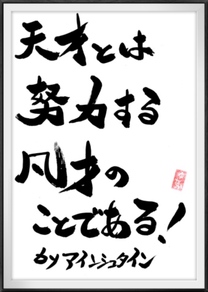 天才とは
努力する
凡才の
ことである!
by アインシュタイン